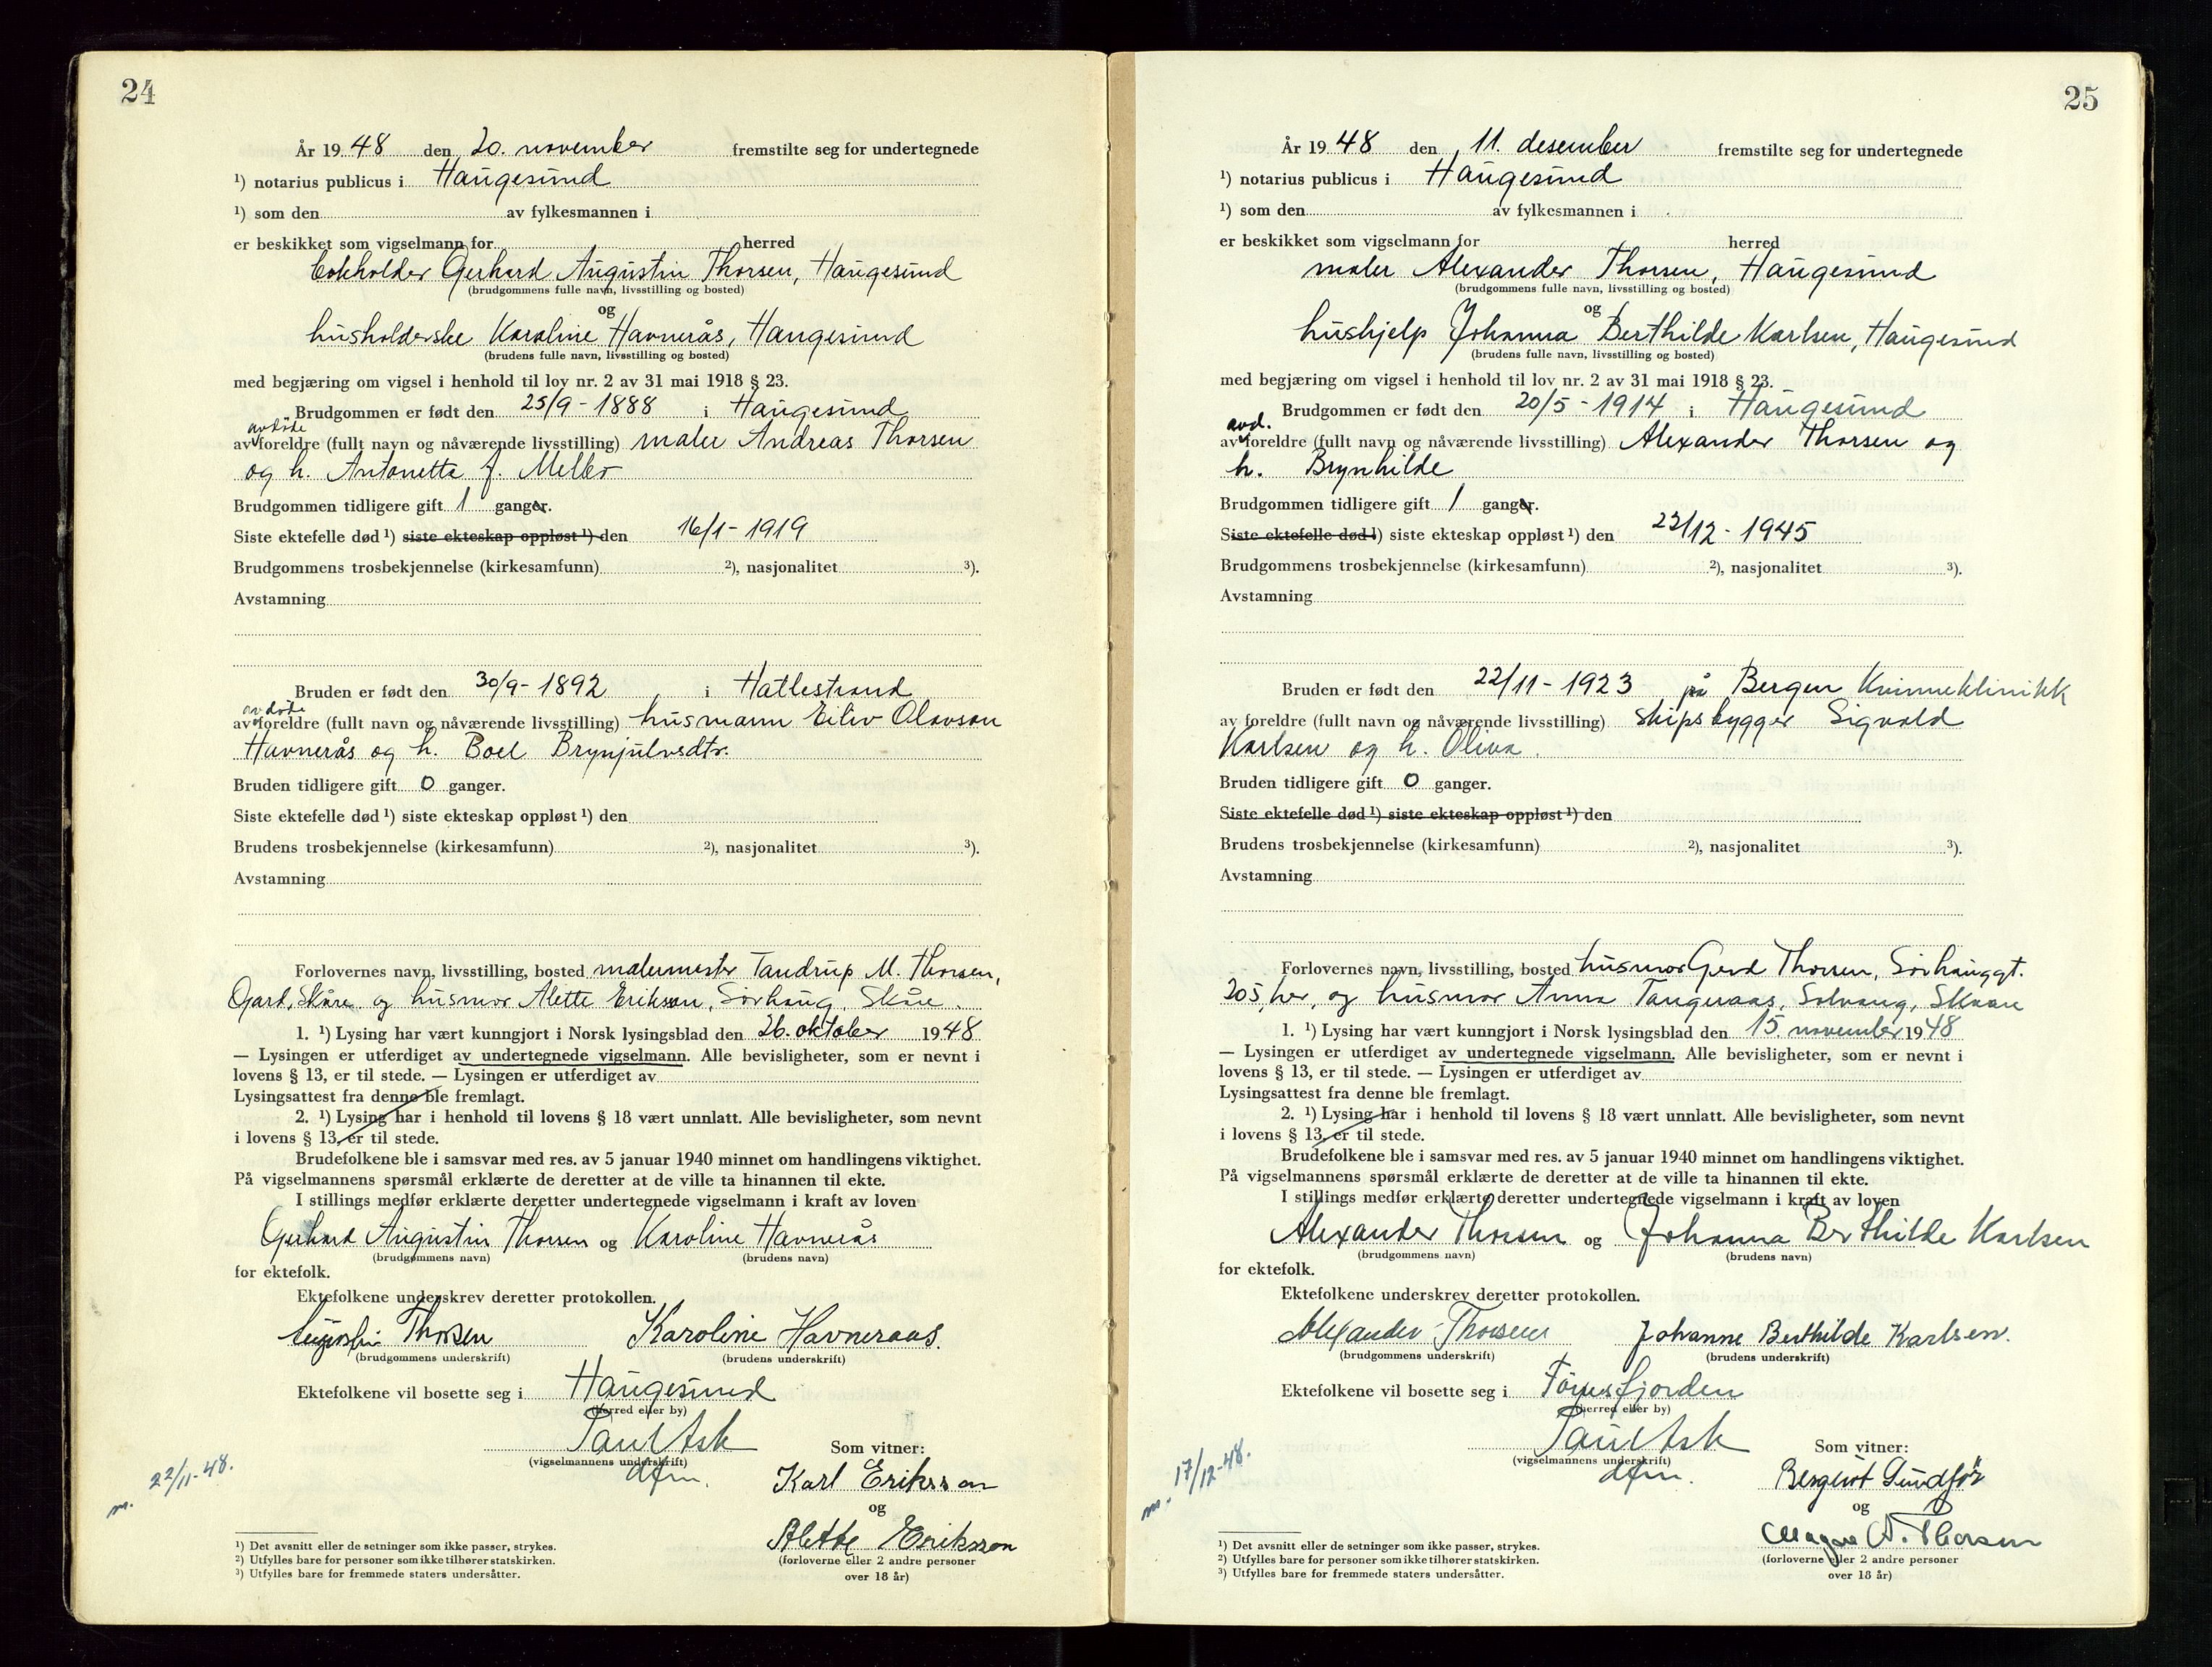 24
År 1948 den 20. november fremstilte seg for undertegnede
¹) notarius publicus i Haugesund
¹) som den av fylkesmannen i
er beskikket som vigselmann for herred
Gerhard Augustin Thorsen, Haugesund
(brudgommens fulle navn, livsstilling og bosted)
og
husholderske Karoline Havnerås, Haugesund
(brudens fulle navn, livsstilling og bosted)
med begjæring om vigsel i henhold til lov nr. 2 av 31 mai 1918 § 23.
Brudgommen er født den 25/9 - 1888 i Haugesund
avdøde
av foreldre (fullt navn og nåværende livsstilling) maler Andreas Thorsen
og h. Antonette f. Melbo
Brudgommen tidligere gift 1 ganger.
Siste ektefelle død ¹) siste ekteskap oppløst ¹) den 16/1 - 1919
Brudgommens trosbekjennelse (kirkesamfunn) ²), nasjonalitet ³).
Avstamning
Bruden er født den 30/9 - 1892 i Hatlestrand
avdøde
av foreldre (fullt navn og nåværende livsstilling) husmann Eiliv Olavson
Havnerås og h. Boel Brynjulvsdtr.
Bruden tidligere gift 0 ganger.
Siste ektefelle død ¹) siste ekteskap oppløst ¹) den
Brudens trosbekjennelse (kirkesamfunn) ²), nasjonalitet ³).
Avstamning
Forlovernes navn, livsstilling, bosted malermester Tandrup M. Thorsen,
Gard, Skåre og husmor Alette Erikson, Sørhaug, Skåre.
1. ¹) Lysing har vært kunngjort i Norsk lysingsblad den 26. oktober 1948
— Lysingen er utferdiget av undertegnede vigselmann. Alle bevisligheter, som er nevnt i
lovens § 13, er til stede. — Lysingen er utferdiget av
Lysingsattest fra denne ble fremlagt.
2. ¹) Lysing har i henhold til lovens § 18 vært unnlatt. Alle bevisligheter, som nevnt
i lovens § 13, er til stede.
Brudefolkene ble i samsvar med res. av 5 januar 1940 minnet om handlingens viktighet.
På vigselmannens spørsmål erklærte de deretter at de ville ta hinannen til ekte.
I stillings medfør erklærte deretter undertegnede vigselmann i kraft av loven
Gerhard Augustin Thorsen og Karoline Havnerås
(brudgommens navn) (brudens navn)
for ektefolk.
Ektefolkene underskrev deretter protokollen.
Augustin Thorsen Karoline Havneraas.
(brudgommens underskrift) (brudens underskrift)
Ektefolkene vil bosette seg i Haugesund
(herred eller by)
Paul Ask
(vigselmannens underskrift)
dfm.
Som vitner:
Karl Eriksson
og
Alette Eriksson
(forloverne eller 2 andre personer
over 18 år)
m. 22/11-48.
¹) Det avsnitt eller de setninger som ikke passer, strykes.
²) Utfylles bare for personer som ikke tilhører statskirken.
³) Utfylles bare for fremmede staters undersåtter.
25
År 1948 den 11. desember fremstilte seg for undertegnede
¹) notarius publicus i Haugesund
¹) som den av fylkesmannen i
er beskikket som vigselmann for herred
maler Alexander Thorsen, Haugesund
(brudgommens fulle navn, livsstilling og bosted)
og
hushjelp Johanna Berthilde Karlsen, Haugesund
(brudens fulle navn, livsstilling og bosted)
med begjæring om vigsel i henhold til lov nr. 2 av 31 mai 1918 § 23.
Brudgommen er født den 20/5 - 1914 i Haugesund
avd.
av foreldre (fullt navn og nåværende livsstilling) Alexander Thorsen og
h. Brynhilde
Brudgommen tidligere gift 1 ganger.
Siste ektefelle død ¹) siste ekteskap oppløst ¹) den 22/12 - 1945
Brudgommens trosbekjennelse (kirkesamfunn) ²), nasjonalitet ³).
Avstamning
Bruden er født den 22/11 - 1923 på Bergen Kvinneklinikk
av foreldre (fullt navn og nåværende livsstilling) skipsbygger Sigvald
Karlsen og h. Oliva.
Bruden tidligere gift 0 ganger.
Siste ektefelle død ¹) siste ekteskap oppløst ¹) den
Brudens trosbekjennelse (kirkesamfunn) ²), nasjonalitet ³).
Avstamning
Forlovernes navn, livsstilling, bosted husmor Gerd Thorsen, Sørhauggt.
205, her, og husmor Anna Tangeraas, Solvang, Skåre
1. ¹) Lysing har vært kunngjort i Norsk lysingsblad den 15. november 1948
— Lysingen er utferdiget av undertegnede vigselmann. Alle bevisligheter, som er nevnt i
lovens § 13, er til stede. — Lysingen er utferdiget av
Lysingsattest fra denne ble fremlagt.
2. ¹) Lysing har i henhold til lovens § 18 vært unnlatt. Alle bevisligheter, som nevnt
i lovens § 13, er til stede.
Brudefolkene ble i samsvar med res. av 5 januar 1940 minnet om handlingens viktighet.
På vigselmannens spørsmål erklærte de deretter at de ville ta hinannen til ekte.
I stillings medfør erklærte deretter undertegnede vigselmann i kraft av loven
Alexander Thorsen og Johanna Berthilde Karlsen
(brudgommens navn) (brudens navn)
for ektefolk.
Ektefolkene underskrev deretter protokollen.
Alexander Thorsen Johanne Berthilde Karlsen.
(brudgommens underskrift) (brudens underskrift)
Ektefolkene vil bosette seg i Førresfjorden
(herred eller by)
Paul Ask
(vigselmannens underskrift)
dfm.
Som vitner:
og
Thorsen
(forloverne eller 2 andre personer
over 18 år)
m. 17/12-48.
¹) Det avsnitt eller de setninger som ikke passer, strykes.
²) Utfylles bare for personer som ikke tilhører statskirken.
³) Utfylles bare for fremmede staters undersåtter.